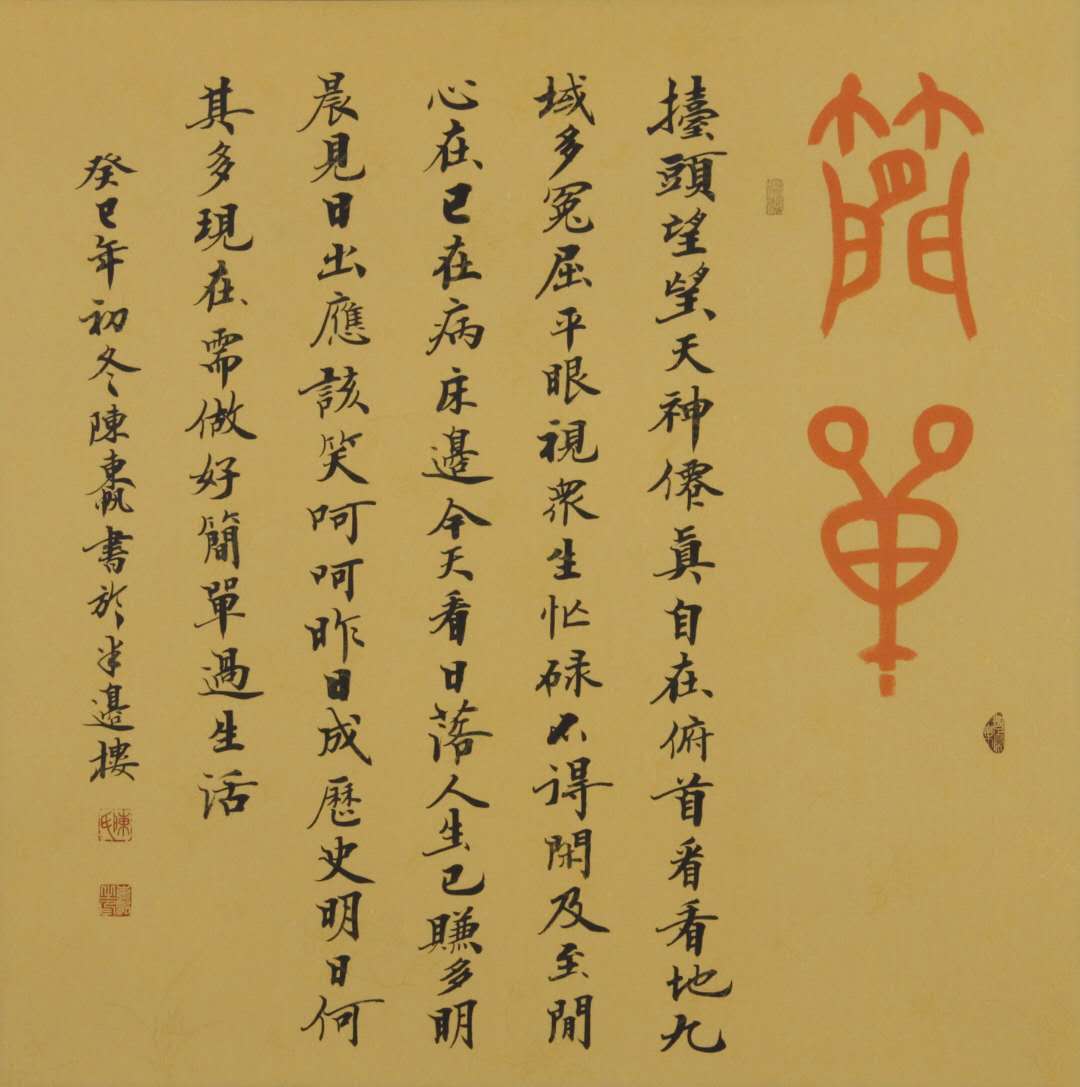 簡單
擡頭望望天神僊真自在俯首看看地九
域多冤屈平眼視眾生忙碌不得閑及至閒
心在已在病床邊今天看日落人生已賺多明
晨見日出應該笑呵呵昨日成歷史明日何
其多現在需做好簡單過生活
癸巳年初冬陳東帆書於半邊樓